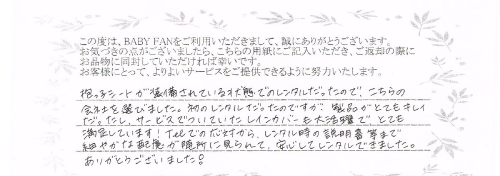 この度は、BABY FANをご利用いただきまして、誠にありがとうございます。
お気づきの点がございましたら、こちらの用紙にご記入いただき、ご返却の際に
お品物に同封していただければ幸いです。
お客様にとって、よりよいサービスをご提供できるように努力いたします。
抱っ子シートが装備されている状態でのレンタルだったので、こちらの
会社を選びました。初のレンタルだったのですが、製品がとてもキレイ
だったし、サービスでついていたレインカバーも大活躍で、とても
満足しています！Telでの応対から、レンタル時の説明書等まで
細やかな配慮が随所に見られて、安心してレンタルできました。
ありがとうございました！